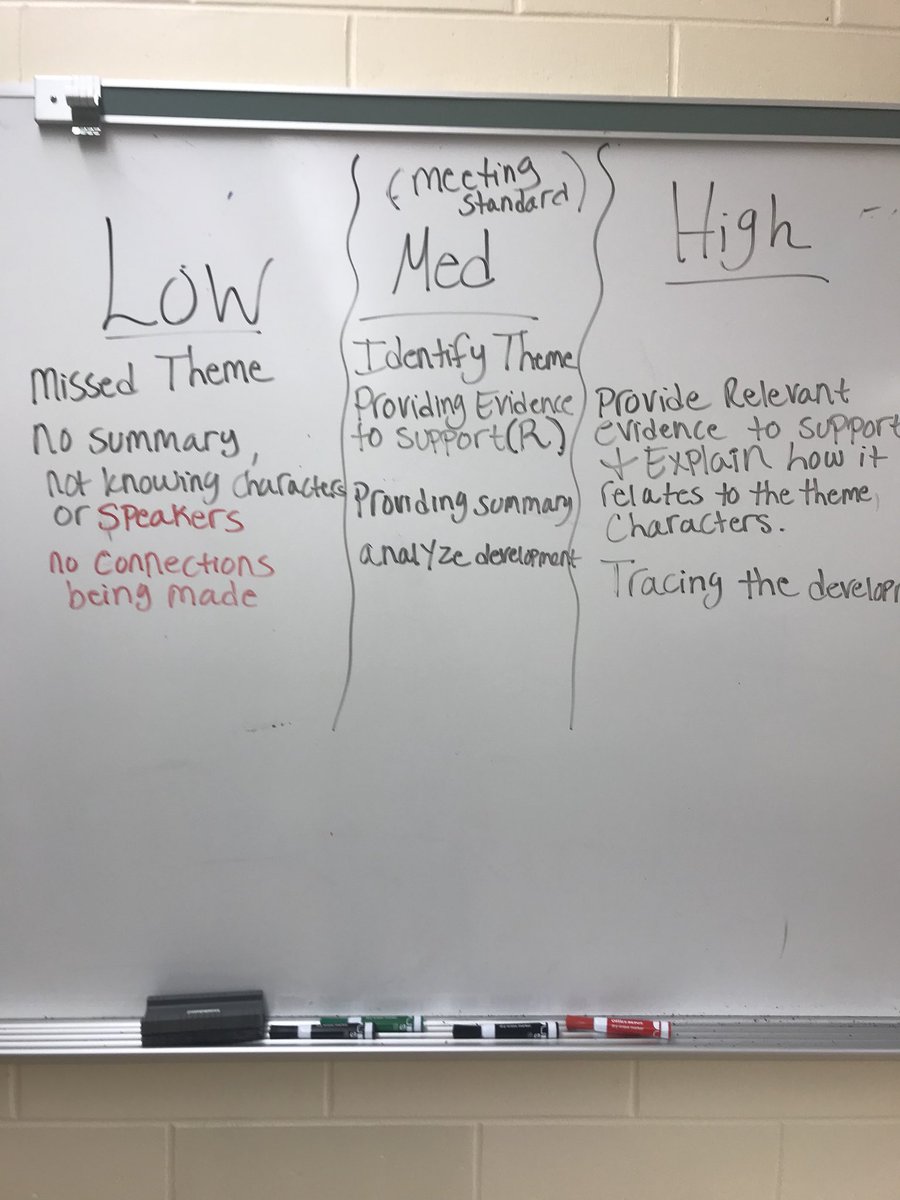 Low
Missed Theme
no summary,
not knowing characters
or speakers
no connections
being made
(meeting
standard)
Med
Identify Theme
Providing Evidence
to support(R)
Providing summary
analyze development
High
Provide Relevant
evidence to support
+ Explain how it
relates to the theme,
characters.
Tracing the develop